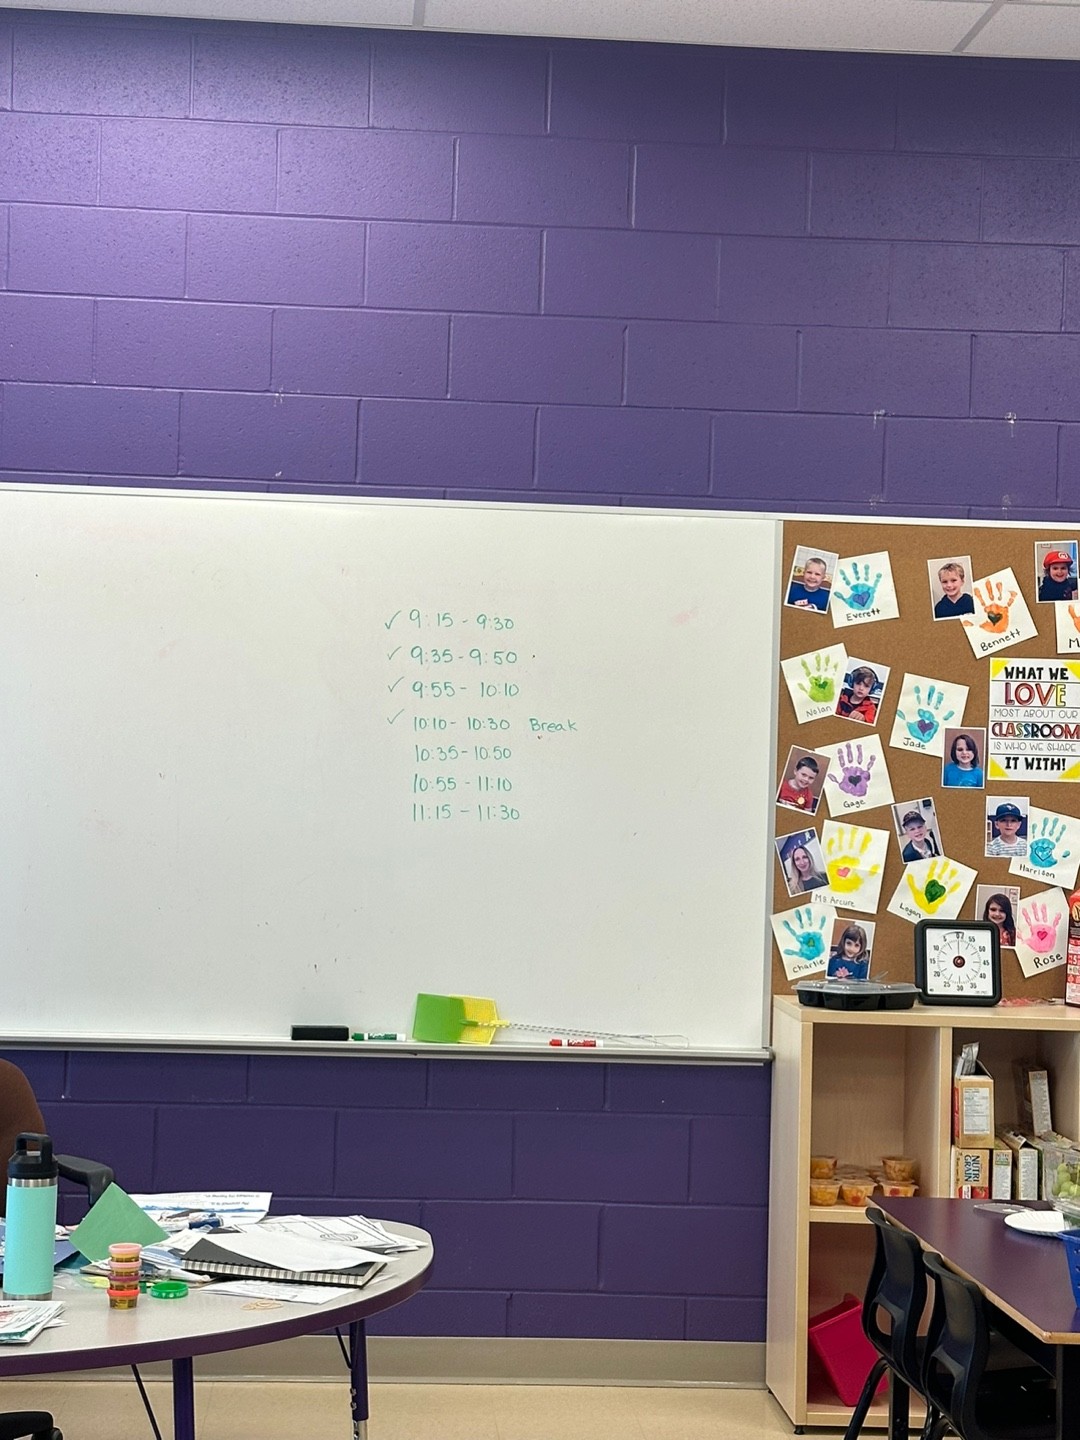 ✓ 9:15 - 9:30
✓ 9:35 - 9:50
✓ 9:55 - 10:10
✓ 10:10 - 10:30 Break
10:35 - 10:50
10:55 - 11:10
11:15 - 11:30
Everett
Bennett
M
Nolan
Jade
WHAT WE
LOVE
MOST ABOUT OUR
CLASSROOM
IS WHO WE SHARE
IT WITH!
Gage
Harrison
Ms Arcure
Logan
Charlie
Rose
5 0 55
10 50
15 45
20 40
25 30 35
NUTRI
GRAIN